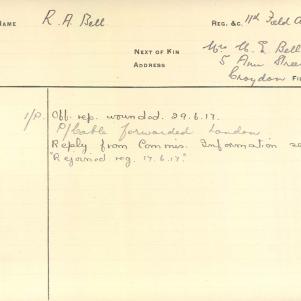 NAME R. A. Bell REG. &C. 11th Field A
NEXT OF KIN Mrs M. E. Bell
ADDRESS 5 Ann Stree
Croydon
1/P. Off. rep. wounded. 29.6.17.
P/Cable forwarded London
Reply from Commis. Information
"Rejoined reg. 17.6.17."